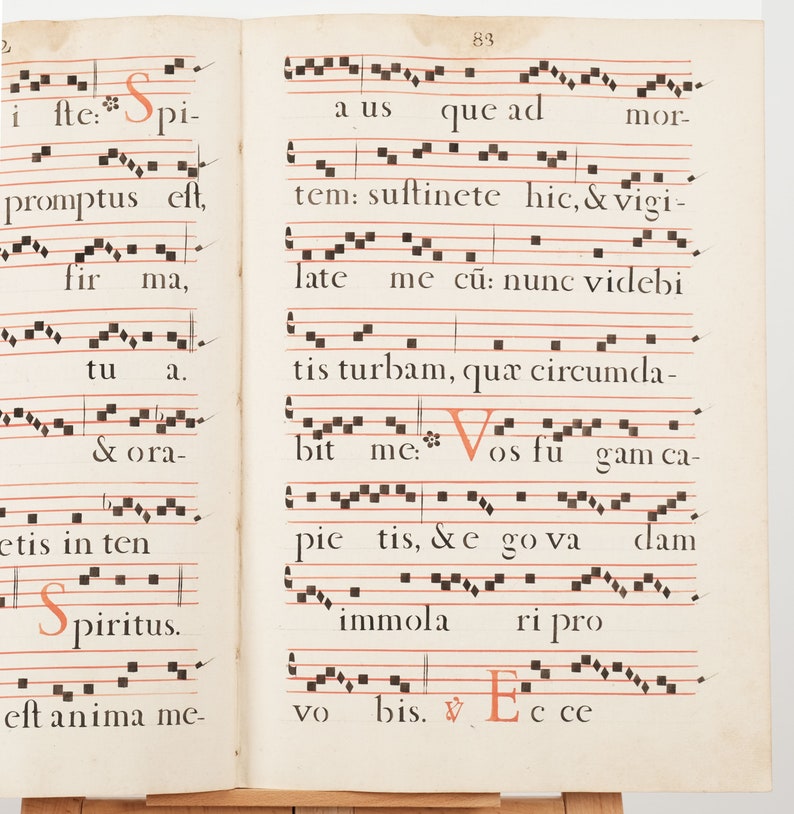 i ſte:* Spi-
promptus eſt,
fir ma,
tu a.
& ora-
etis in ten
Spiritus.
eſt anima me-
83
a us que ad mor-
tem: suſtinete hic, & vigi-
late me cũ: nunc videbi
tis turbam, quæ circumda-
bit me:* Vos fu gam ca-
pie tis, & e go va dam
immola ri pro
vo bis. ℣ Ec ce